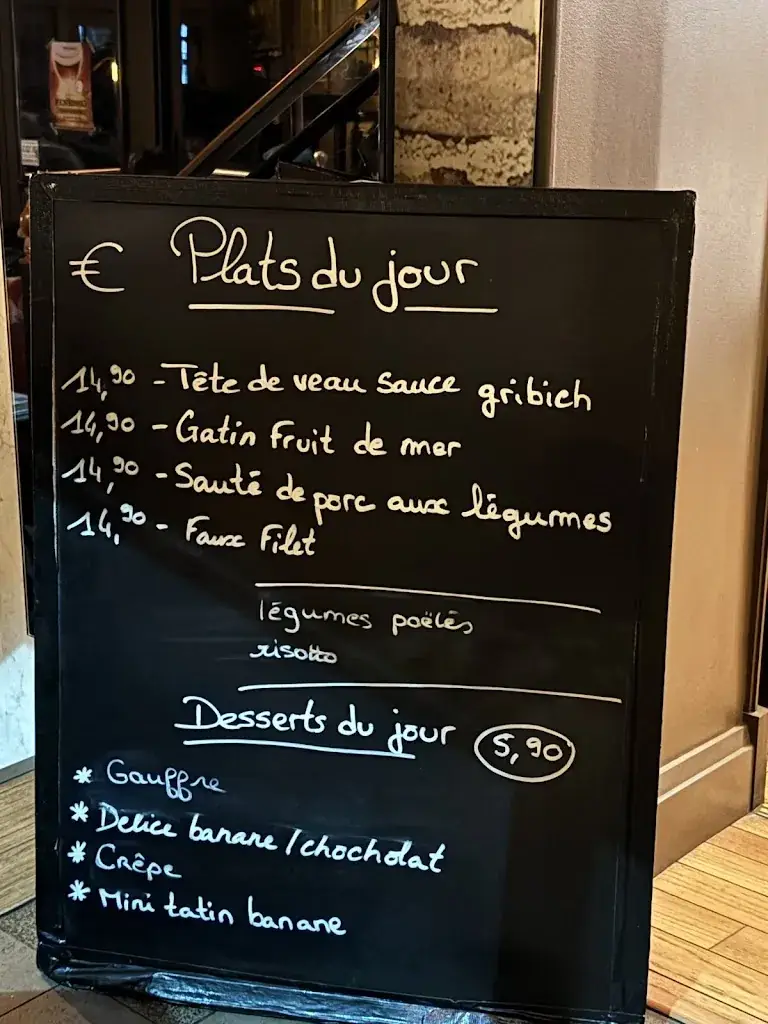 € Plats du jour
14,90 - Tête de veau sauce gribich
14,90 - Gatin Fruit de mer
14,90 - Sauté de porc aux légumes
14,90 - Faux Filet
légumes poëlés
risotto
Desserts du jour 5,90
* Gauffre
* Delice banane / chocholat
* Crêpe
* Mini tatin banane